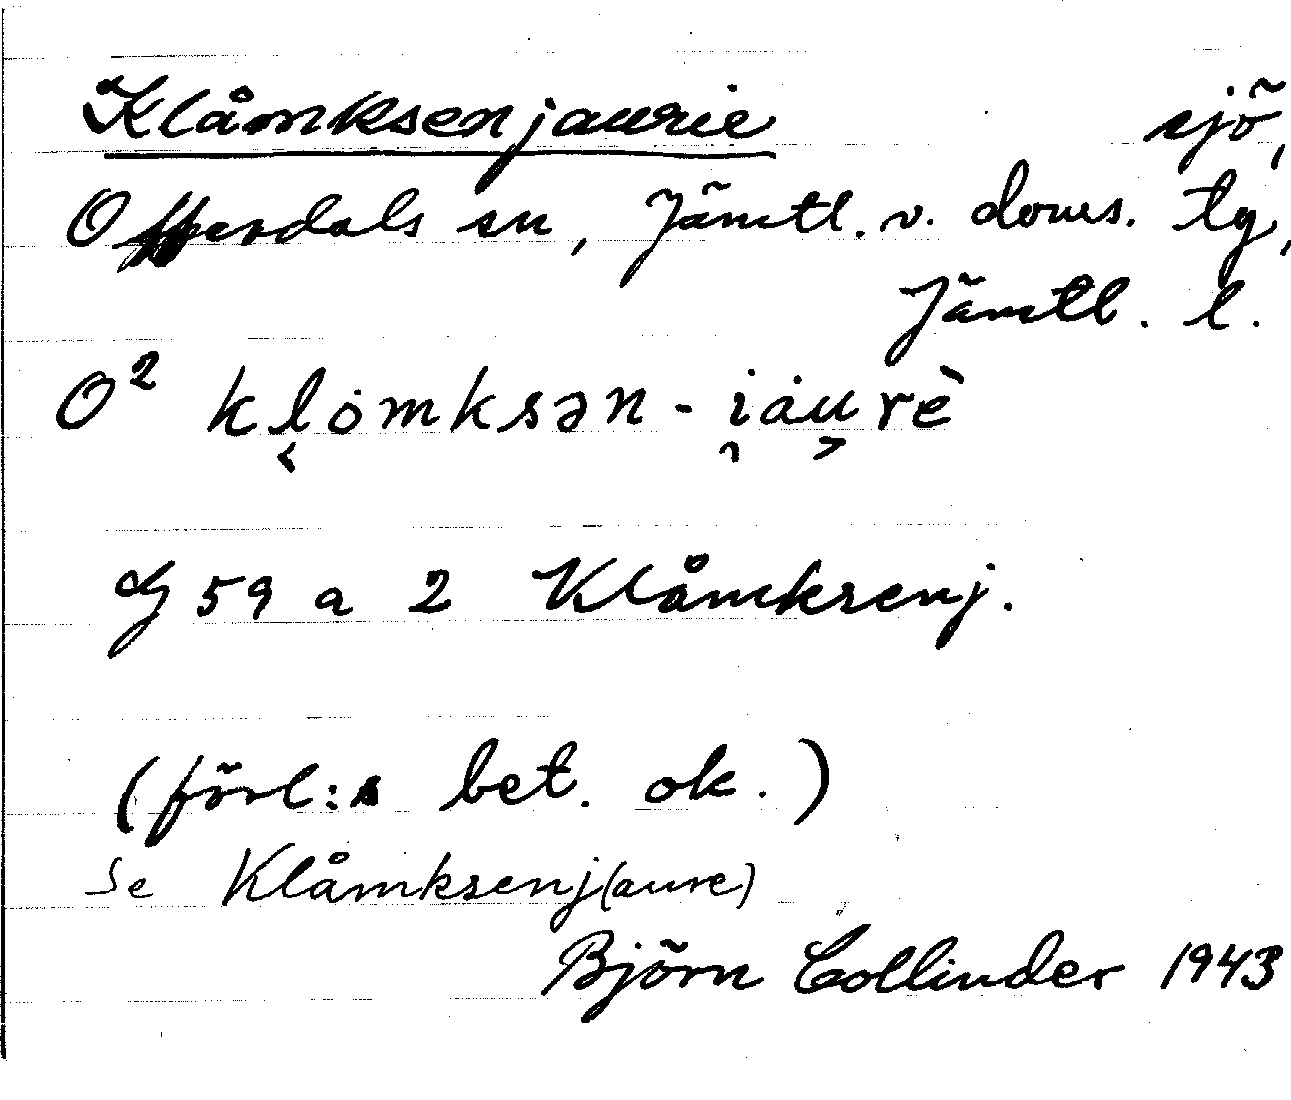 Klåmksenjaurie sjö,
Offerdals sn, Jämtl. v. doms. tg,
Jämtl. l.
O² kl̬ȯmksən-i̯ȧu̬rè
G 59 a 2 Klåmksenj.
(förl:s bet. ok.)
Se Klåmksenj(aure)
Björn Collinder 1943